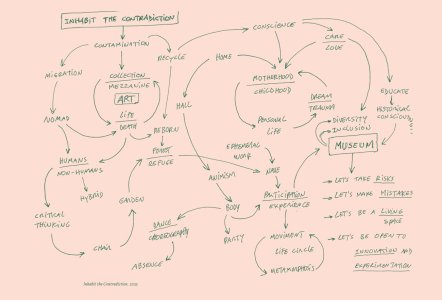 INHABIT THE CONTRADICTION
CONTAMINATION
CONSCIENCE
CARE
LOVE
MIGRATION
RECYCLE
HOME
COLLECTION
MEZZANINE
ART
LIFE
DEATH
MOTHERHOOD
CHILDHOOD
EDUCATE
HISTORICAL
CONSCIOUS
DREAM
TRAUMA
NOMAD
HALL
REBORN
PERSONAL
LIFE
DIVERSITY
INCLUSION
MUSEUM
HUMANS
NON-HUMANS
HYBRID
REFUSE
EPHEMERAL
WORK
ANIMISM
NAME
PARTICIPATION
EXPERIENCE
LET'S TAKE RISKS
LET'S MAKE MISTAKES
LET'S BE A LIVING
SPACE
LET'S BE OPEN TO
INNOVATION AND
EXPERIMENTATION
CRITICAL
THINKING
CHAIR
DANCE
CHOREOGRAPHY
ABSENCE
BODY
PARTY
MOVIMENT
LIFE CIRCLE
METAMORPHOSIS
Inhabit the Contradiction, 2019